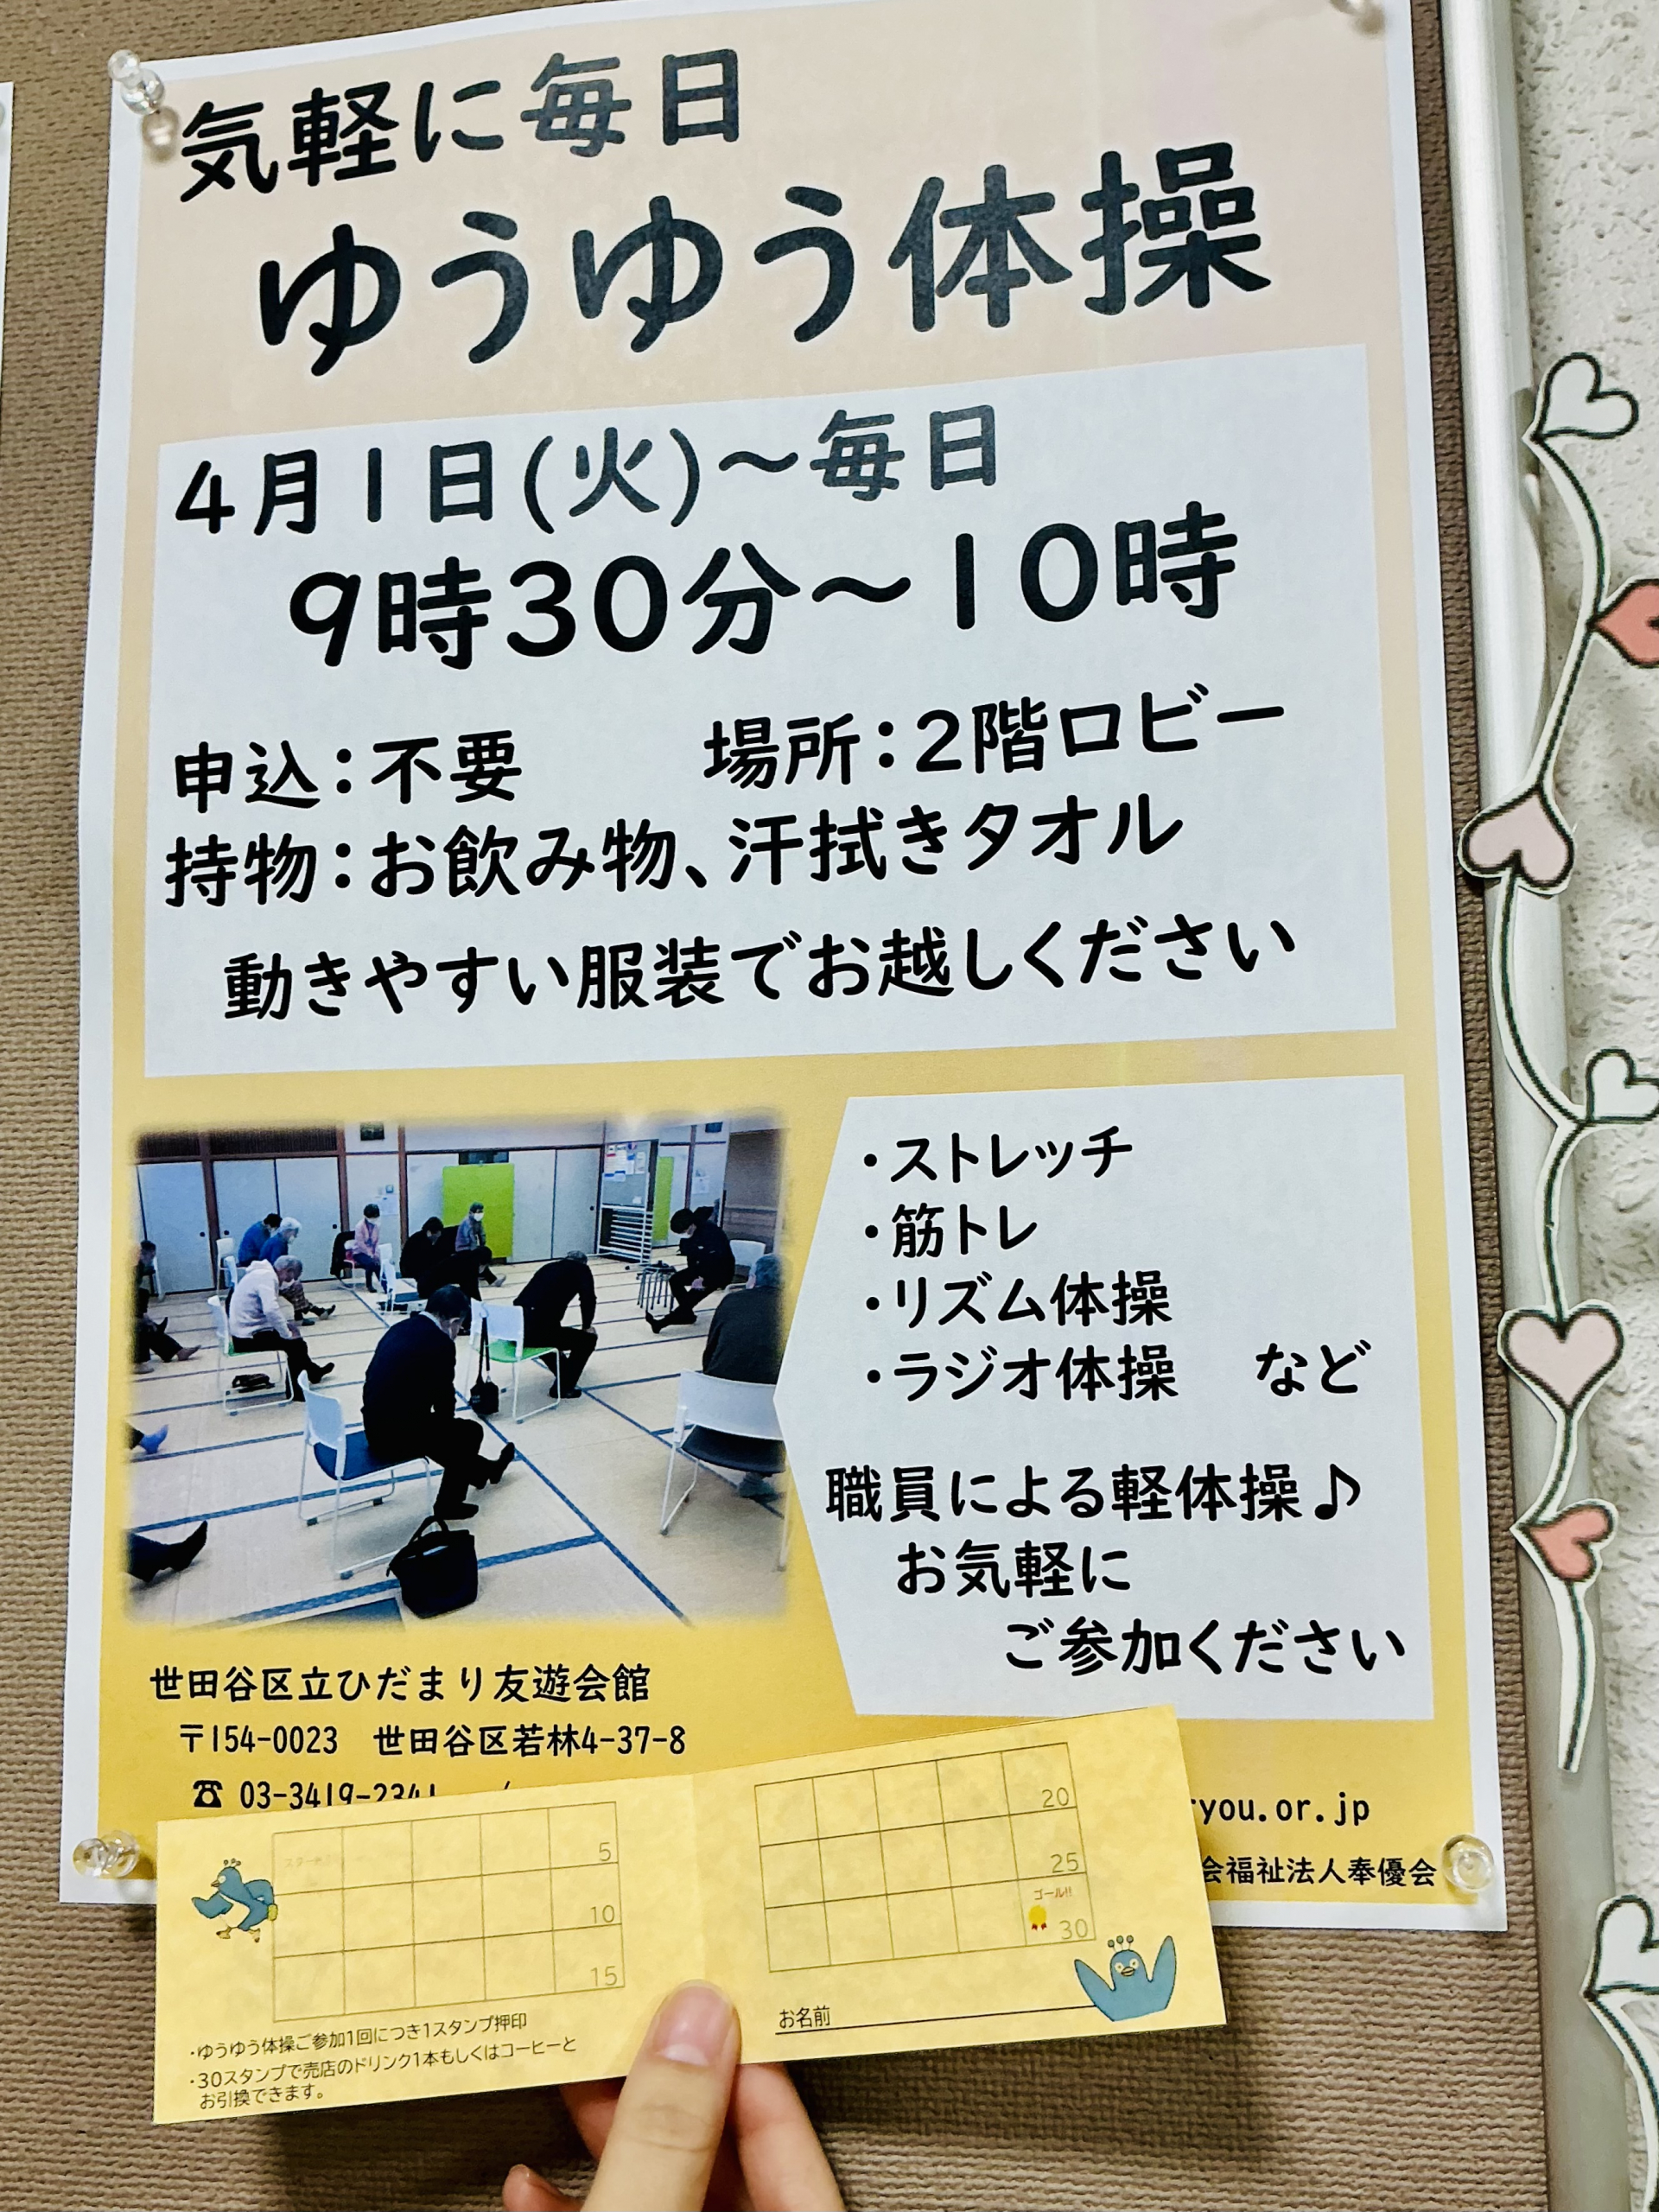 気軽に毎日
ゆうゆう体操
4月1日(火)～毎日
9時30分～10時
申込：不要　　場所：2階ロビー
持物：お飲み物、汗拭きタオル
動きやすい服装でお越しください
・ストレッチ
・筋トレ
・リズム体操
・ラジオ体操　など
職員による軽体操♪
お気軽に
ご参加ください
世田谷区立ひだまり友遊会館
〒154-0023　世田谷区若林4-37-8
☎ 03-3419-2341
you.or.jp
会福祉法人奉優会
スタート
5
10
15
・ゆうゆう体操ご参加1回につき1スタンプ押印
・30スタンプで売店のドリンク1本もしくはコーヒーと
お引換できます。
20
25
ゴール!!
30
お名前